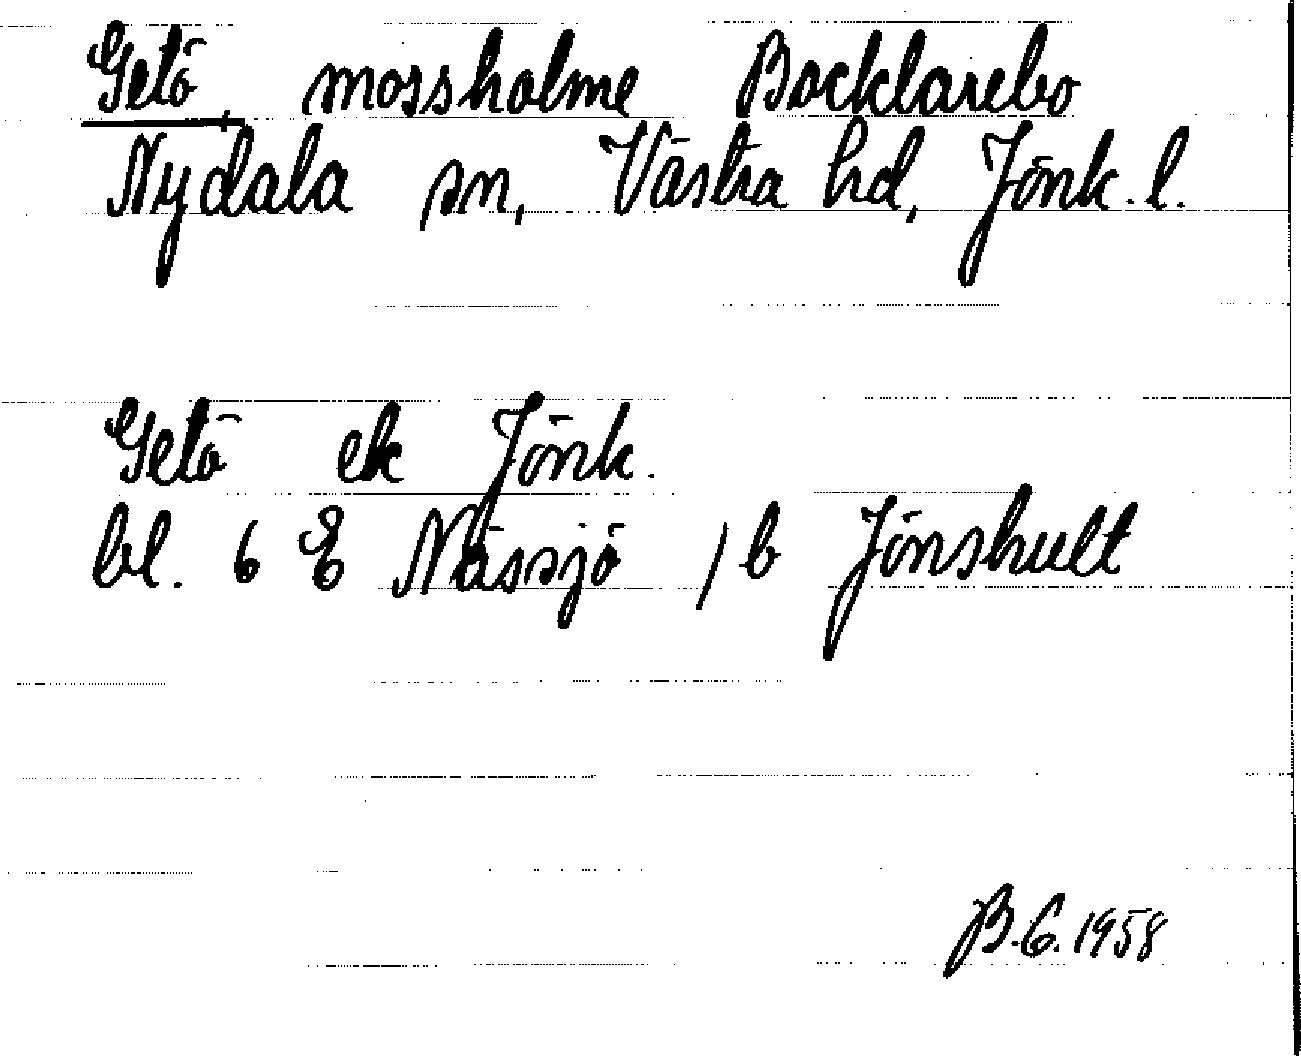 Getö, mossholme Bocklarebo
Nydala sn, Västra hd, Jönk. l.
Getö ek Jönk.
bl. 6 E Nässjö / b Jönshult
B.G. 1958